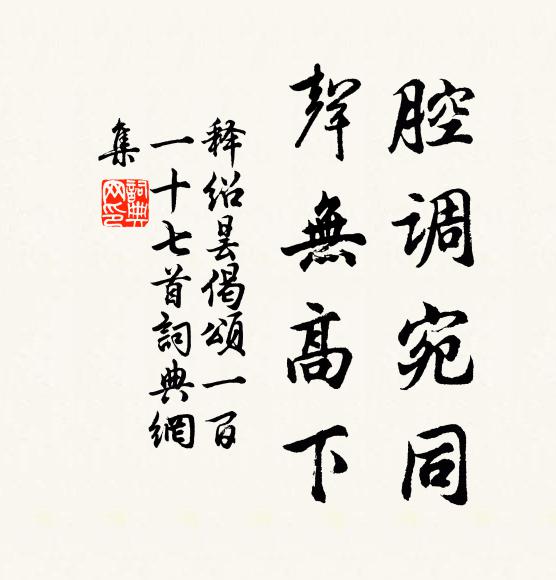 腔调宛同
聲無高下
释绍昙偈頌一百
一十七首詞典網
集
詞典
网印